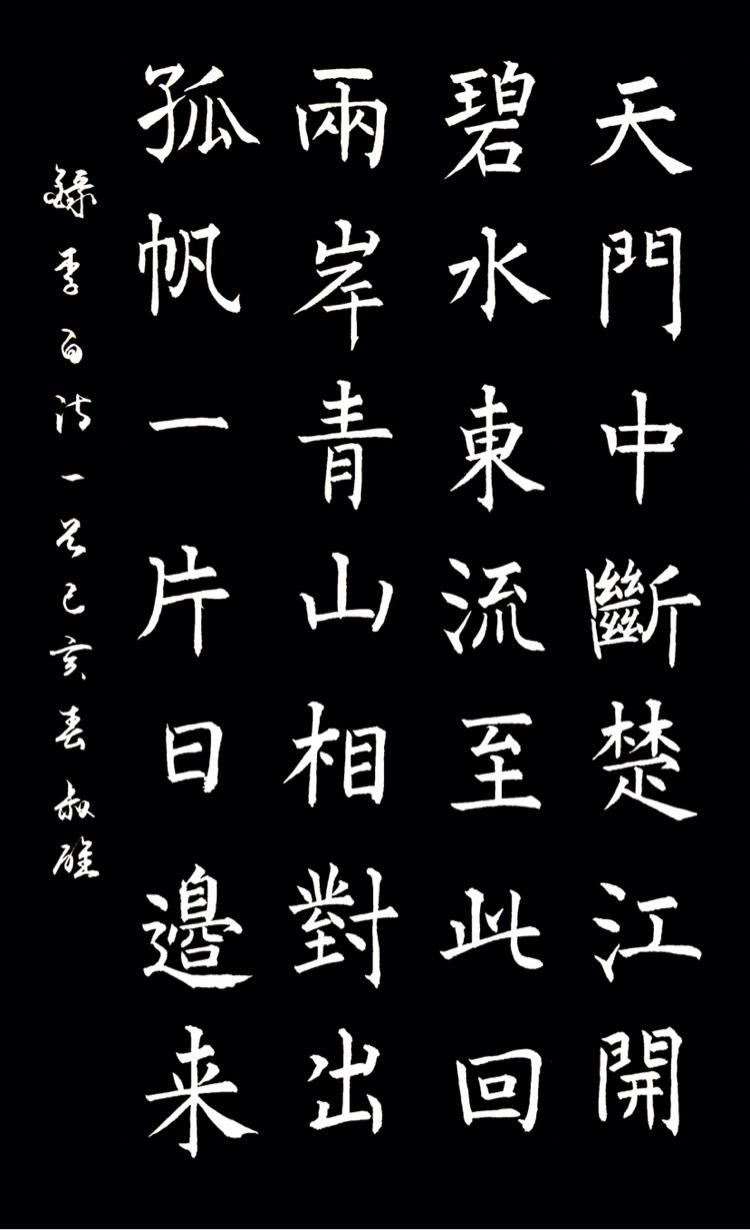 天門中斷楚江開
碧水東流至此回
兩岸青山相對出
孤帆一片日邊来
録李白詩一首己亥春叔